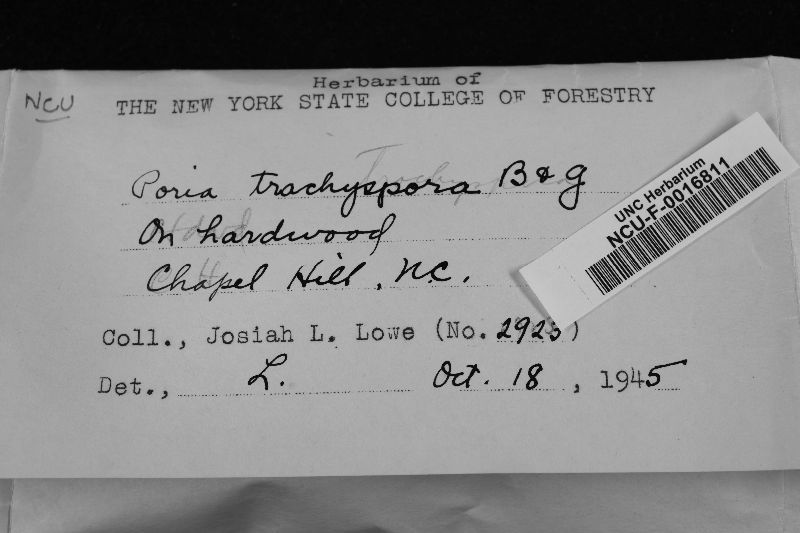 NCU
Herbarium of
THE NEW YORK STATE COLLEGE OF FORESTRY
Poria trachyspora B & G
On hardwood
Chapel Hill, N.C.
UNC Herbarium
NCU-F-0016811
Coll., Josiah L. Lowe (No. 2923)
Det., L. Oct. 18, 1945